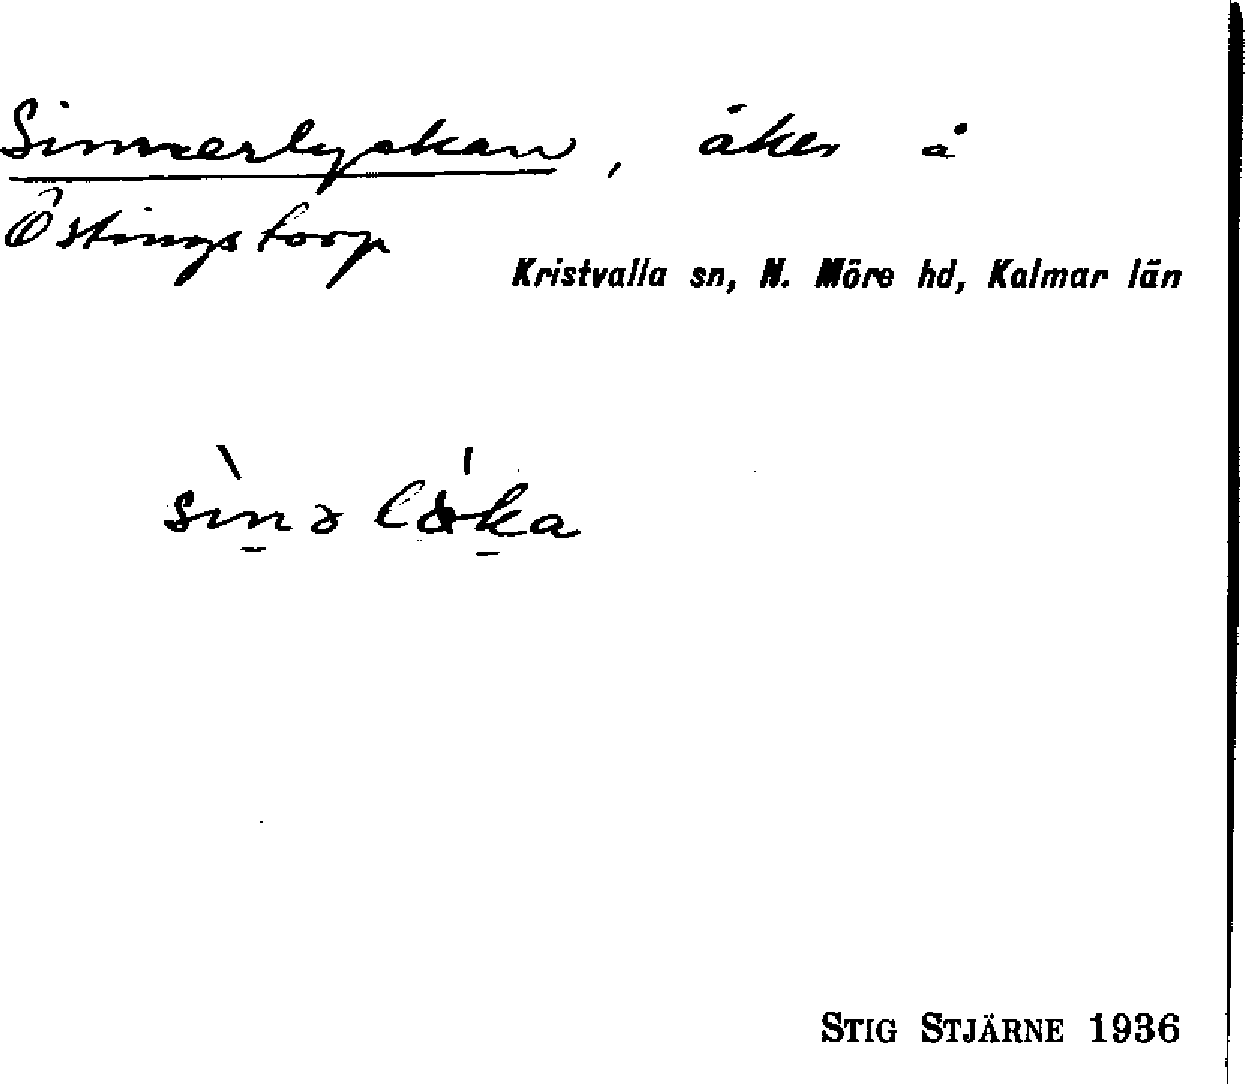 Sinnerlyckan, åker å
Östingstorp
Kristvalla sn, N. Möre hd, Kalmar län
STIG STJÄRNE 1936